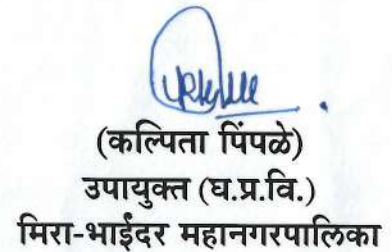 (कल्पिता पिंपळे)
उपायुक्त (घ.प्र.वि.)
मिरा-भाईंदर महानगरपालिका